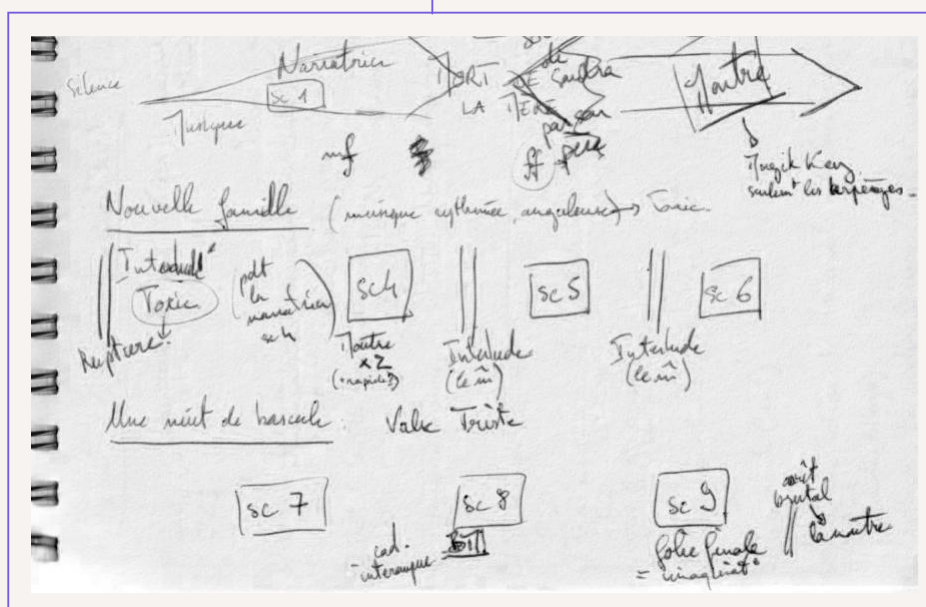 Silence
Narratrice
sc 1
Musique
MORT DE
LA MÈRE
de Sandra
par son
père
mf
ff
Montre
Muzik Key
seulemt les arpèges.
Nouvelle famille (musique rythmée, angoleuse) → Toxic
Interlude
Toxic
Rupture
(pdt la narratrice sc 4)
sc 4
Montre
x2
(+ rapide?)
Interlude
(le m̂)
sc 5
Interlude
(le m̂)
sc 6
Une nuit de bascule : Valse Triste
sc 7
sc 8
cad.
interrompue
sc 9
folie finale
= imaginat°
arrêt
brutal
la montre